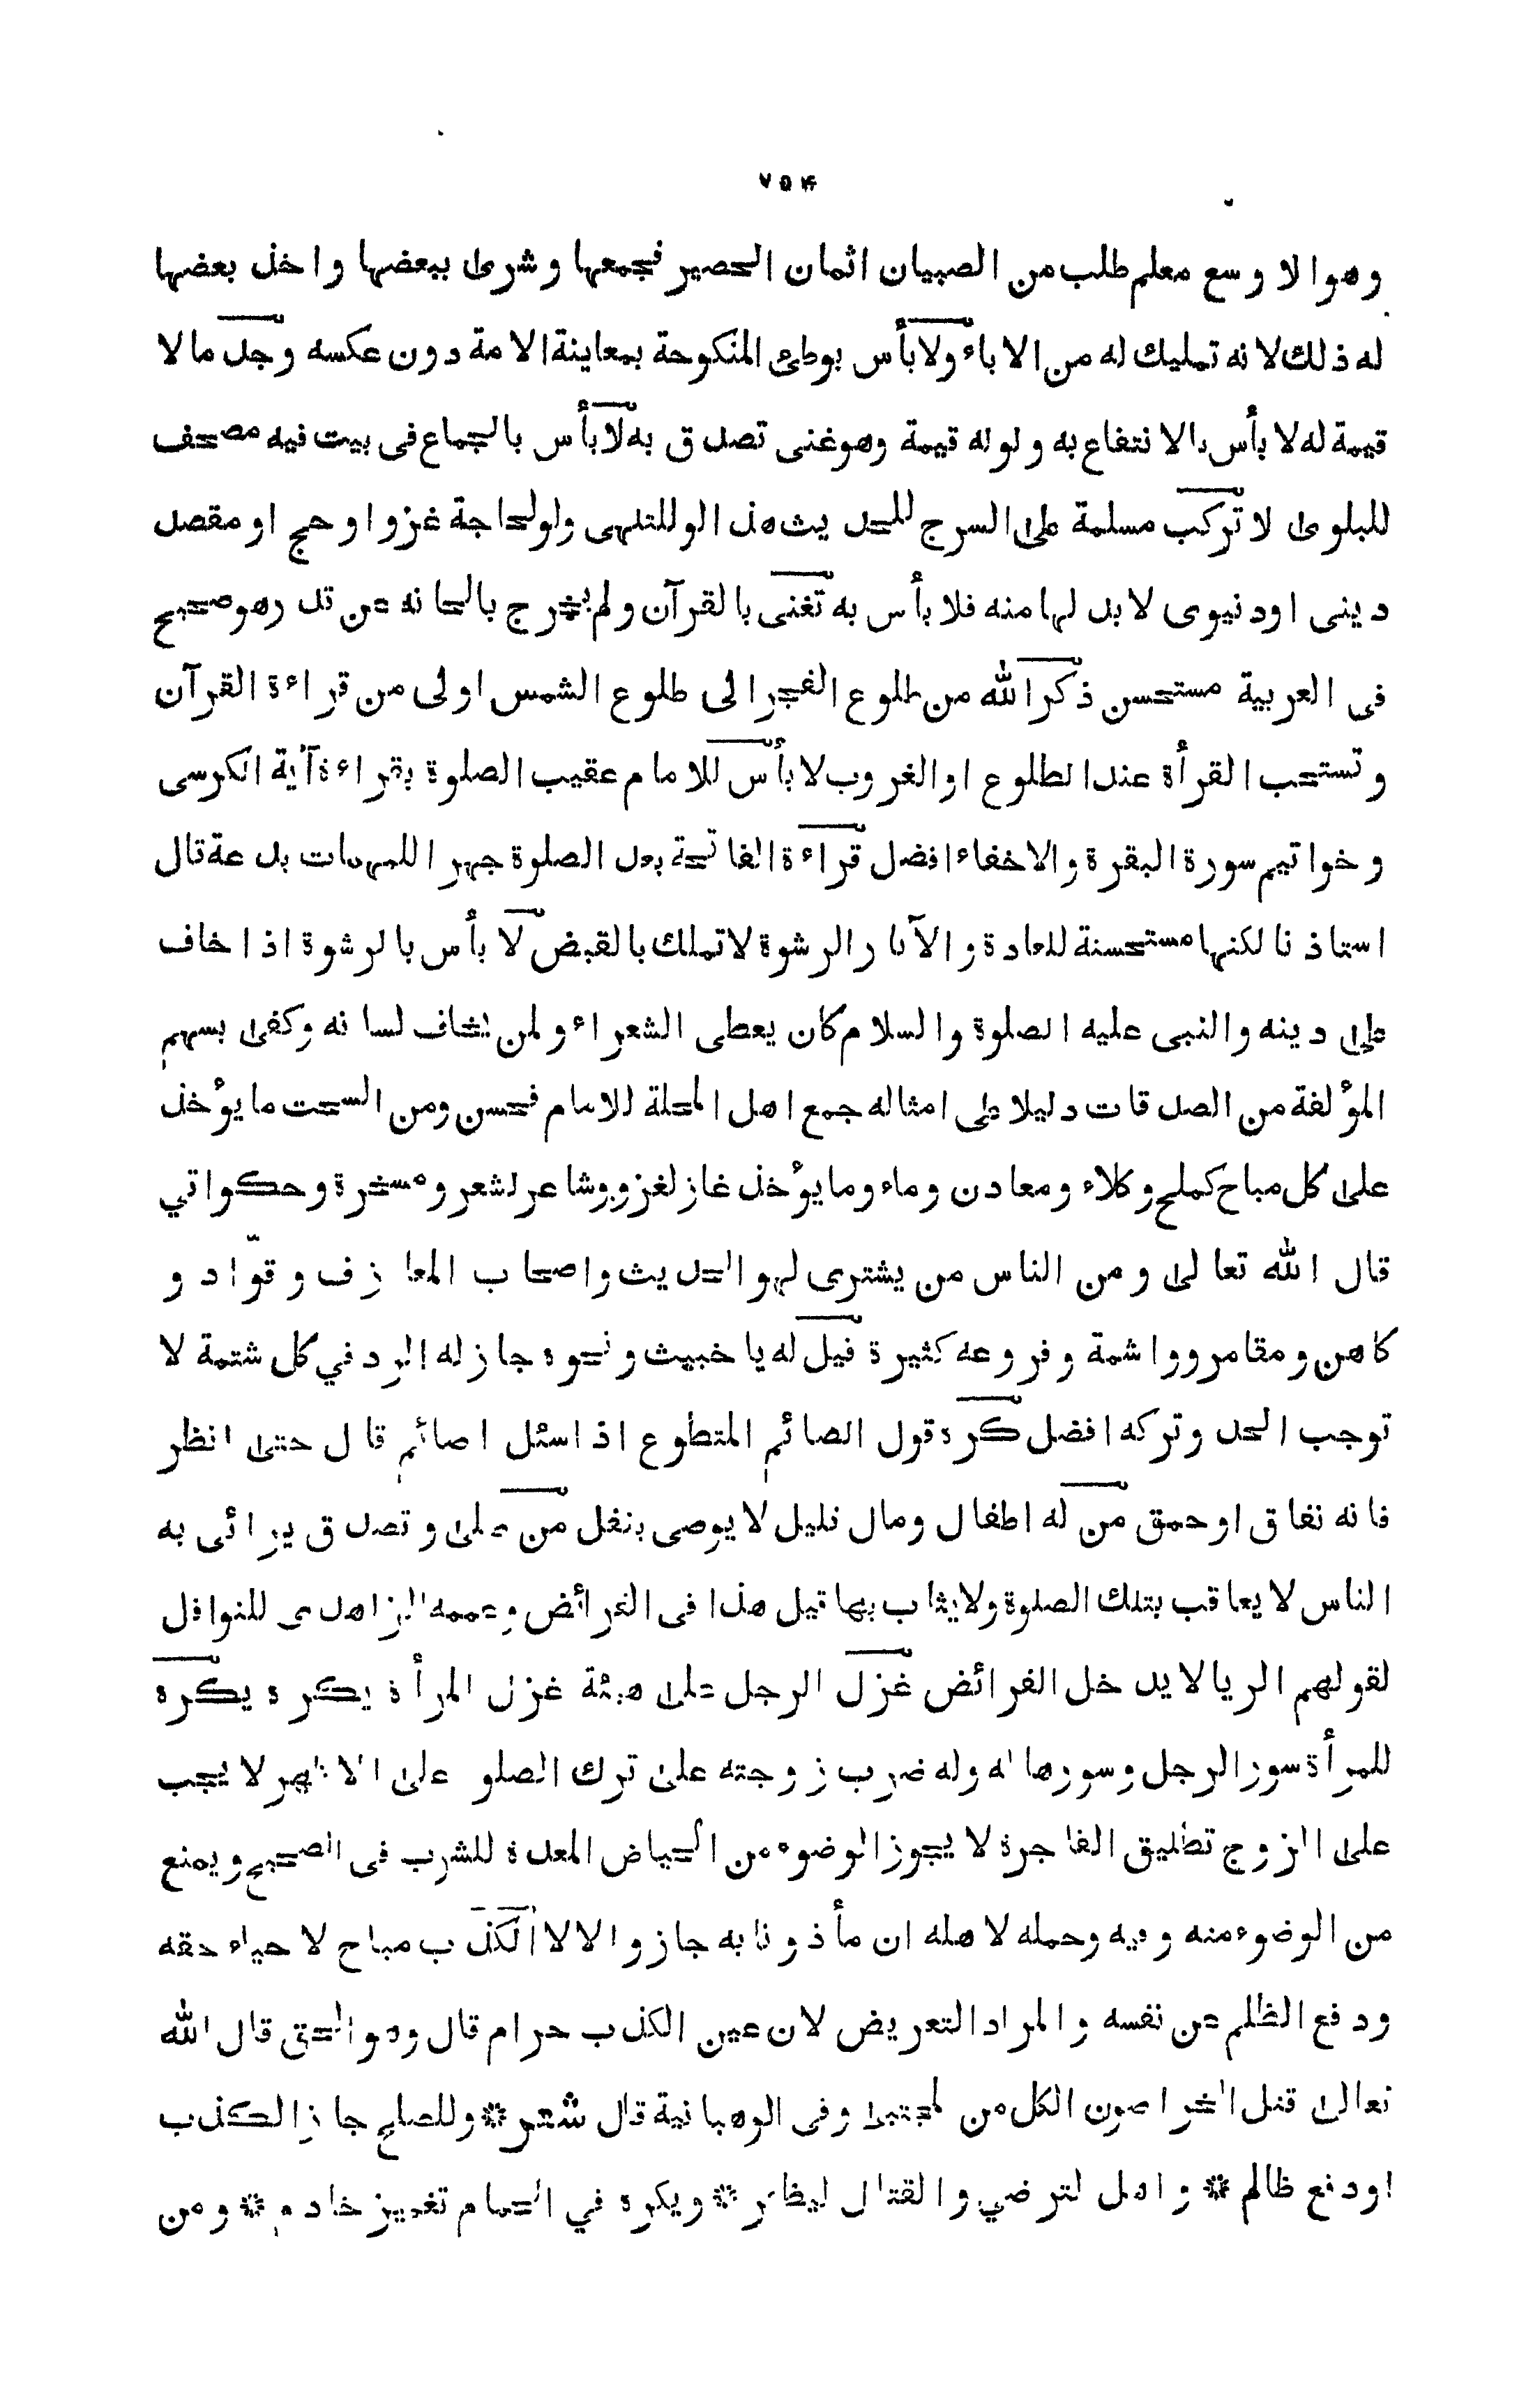 ٧٥٤
وهوالاوسع معلم طلب من الصبيان اثمان الحصير فجمعها وشرى ببعضها واخذ بعضها
له ذلك لانه تمليك له من الاباء ولابأس بوطئ المنكوحة بمعاينة الامة دون عكسه وجد مالا
قيمة له لا بأس بالانتفاع به ولو له قيمة وهوغنى تصدق به لابأس بالجماع فى بيت فيه مصحف
للبلوى لا تركب مسلمة على السرج للحديث هذا لو للتلهى ولولحاجة غزو اوحج اومقصد
دينى اودنيوى لابد لها منه فلا بأس به تغنى بالقرآن ولم يخرج بالحانه عن قدره وصحيح
فى العربية مستحسن ذكرالله من طلوع الفجر الى طلوع الشمس اولى من قراءة القرآن
وتستحب القرأة عند الطلوع اوالغروب لابأس للامام عقيب الصلوة بقراءة آية الكرسى
وخواتيم سورة البقرة والاخفاء افضل قراءة الفاتحة بعد الصلوة جهرا للمهمات بدعة قال
استاذنا لكنها مستحسنة للعادة والآثار الرشوة لاتملك بالقبض لا بأس بالرشوة اذا خاف
على دينه والنبى عليه الصلوة والسلام كان يعطى الشعراء ولمن يخاف لسانه وكفى بسهم
المؤلفة من الصدقات دليلا على امثاله جمع اهل المحلة للامام فحسن ومن السحت مايؤخذ
على كل مباح كملح وكلاء ومعادن وماء ومايؤخذ غاز لغزو وشاعر لشعر ومسخرة وحكواتي
قال الله تعالى ومن الناس من يشترى لهوالحديث واصحاب المعازف وقوّاد و
كاهن ومقامر وواشمة وفروعه كثيرة قيل له يا خبيث ونحوه جاز له الرد في كل شتمة لا
توجب الحد وتركه افضل كره قول الصائم المتطوع اذا سئل اصائم قال حتى انظر
فانه نفاق اوحمق من له اطفال ومال قليل لايوصى بنفل من صلى وتصدق يرائى به
الناس لايعاقب بتلك الصلوة ولايثاب بها قيل هذا فى الفرائض وعممه الزاهدى للنوافل
لقولهم الريا لايدخل الفرائض غزل الرجل على هيئة غزل المرأة يكره يكره
للمرأة سور الرجل وسورها له وله ضرب زوجته على ترك الصلو على الاظهر لا يجب
على الزوج تطليق الفاجرة لا يجوز الوضوء من الحياض المعدة للشرب فى الصحيح ويمنع
من الوضوء منه وفيه وحمله لاهله ان مأذونا به جاز والالا الكذب مباح لا حياء حقه
ودفع الظلم عن نفسه والمراد التعريض لان عين الكذب حرام قال وهو الحق قال الله
تعالى قتل الخراصون الكل من المجتبى وفى الوهبانية قال شعر * وللصلح جاز الكذب
اودفع ظالم * واهل لترضي والقتال ليظفر * ويكره في الحمام تغميز خادم * ومن